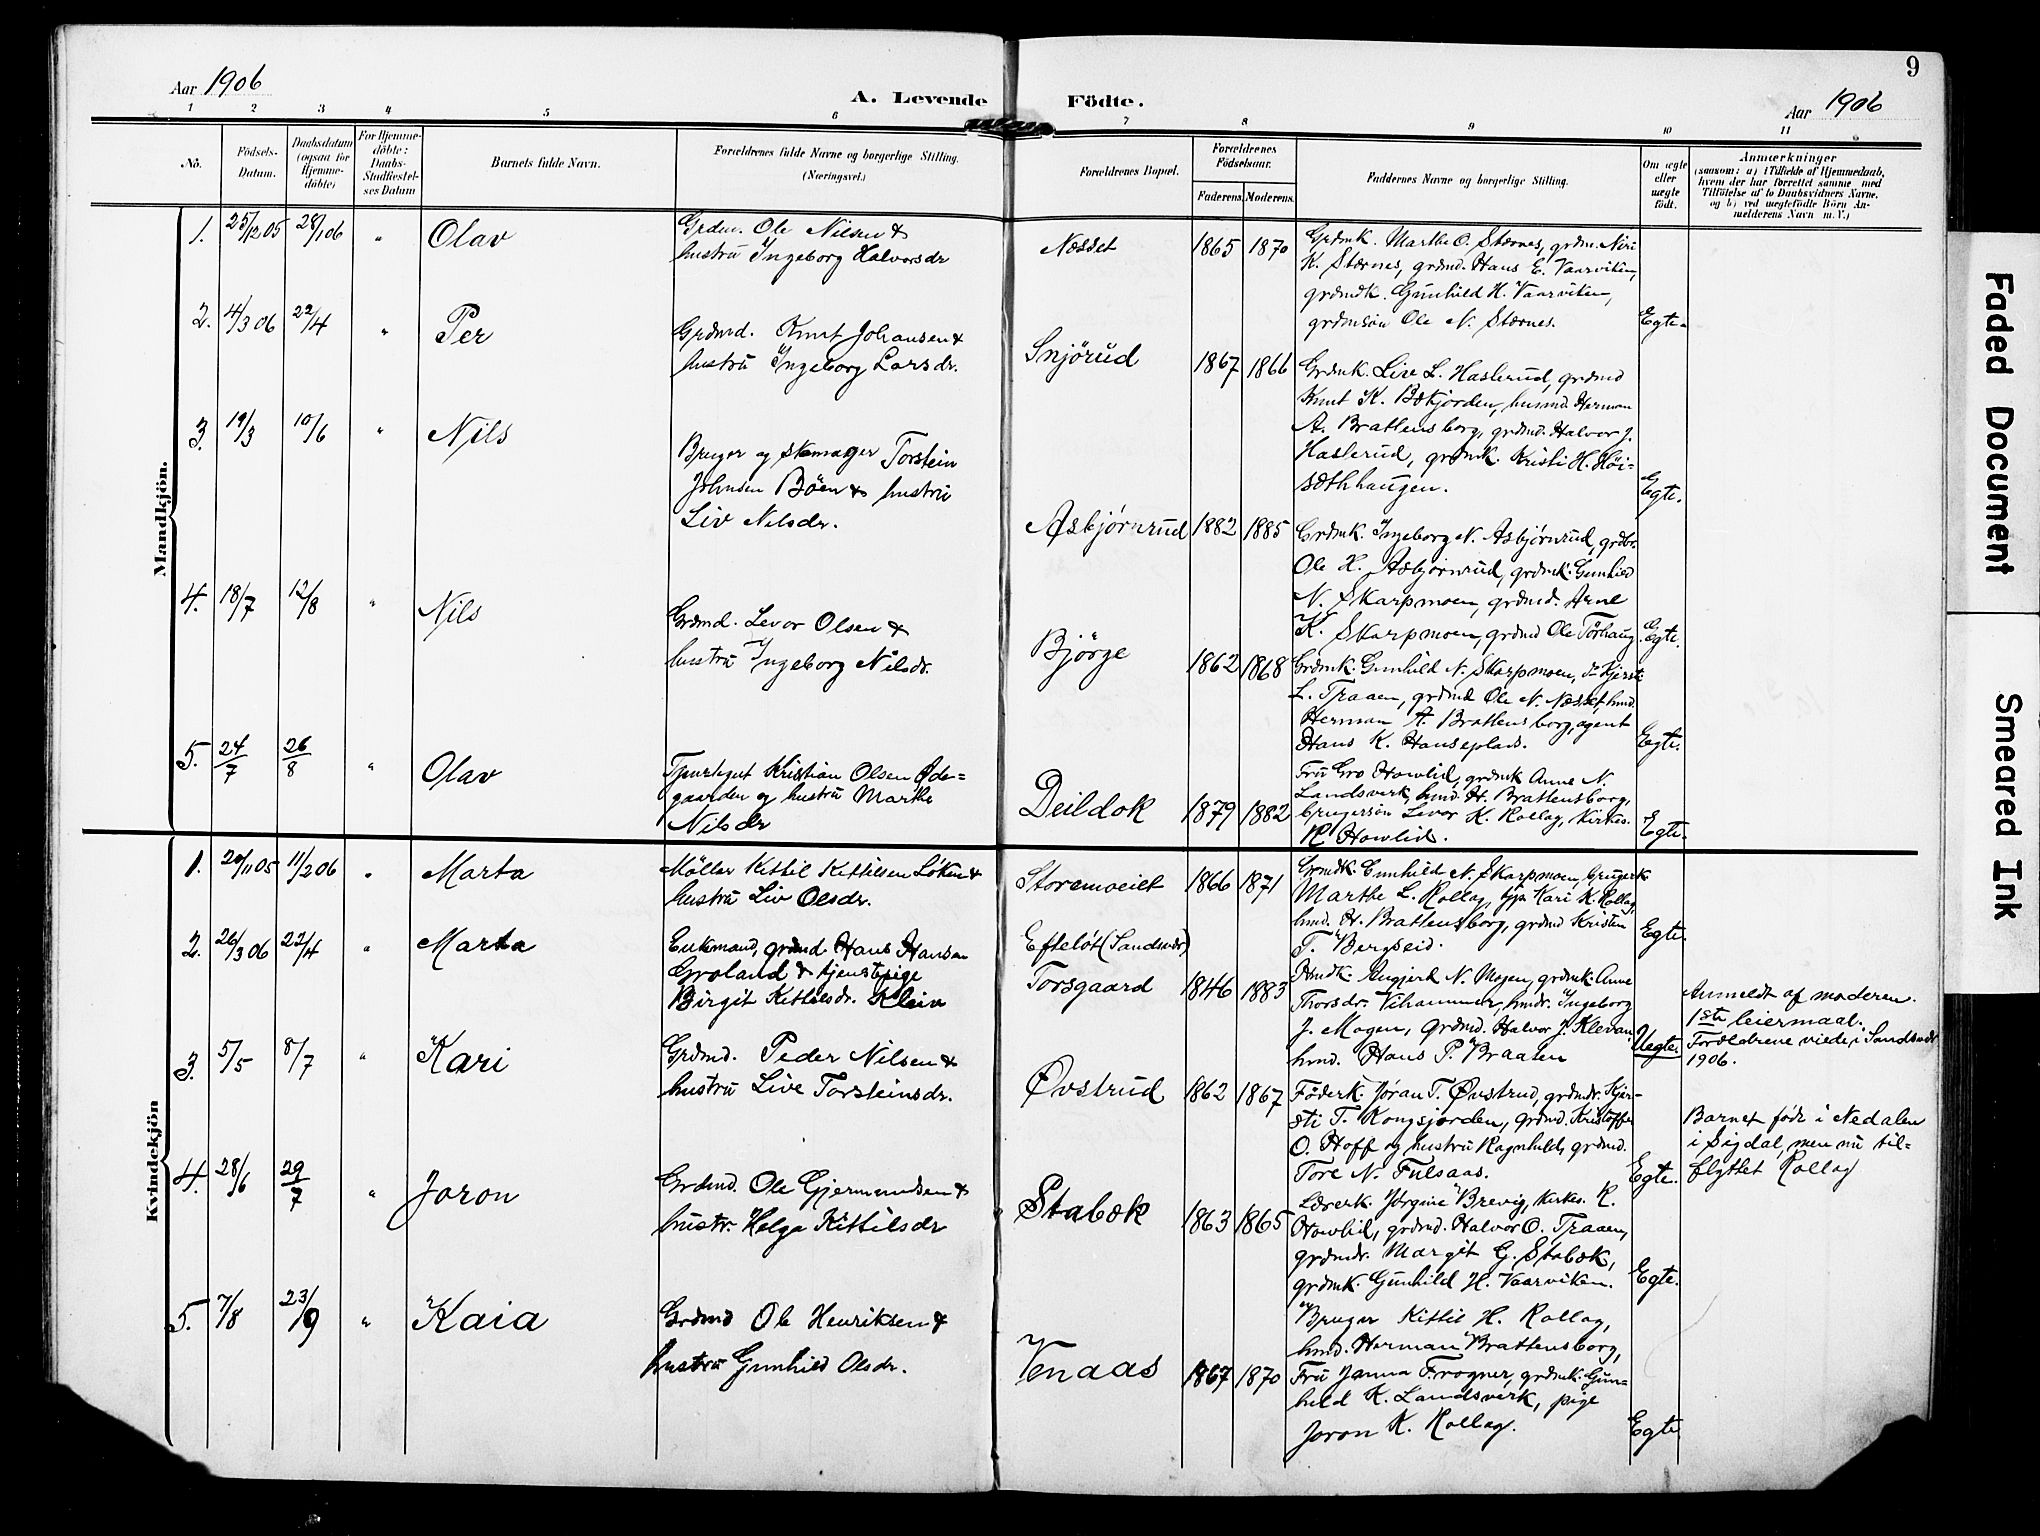 9
Aar 1906
A. Levende Födte.
Aar 1906
1 2 3 4 5 6 7 8 9 10 11
No.
Födsels-
Datum.
Daabsdatum
(ogsaa for
Hjemme-
döbte)
For Hjemme-
döbte:
Daabs-
Stadfæstel-
ses Datum
Barnets fulde Navn.
Forældrenes fulde Navne og borgerlige Stilling.
(Næringsvei.)
Forældrenes Bopæl.
Forældrenes
Födselsaar.
Faderens. Moderens.
Faddernes Navne og borgerlige Stilling.
Om ægte
eller
uægte
født.
Anmærkninger
(saasom: a) i Tilfælde af Hjemmedaab,
hvem der har forrettet samme med
Tilföielse af to Daabsvidners Navne,
og b) ved uægtefödte Börn An-
melderens Navn m. V.)
Mandkjön.
1. 25/12 05 28/1 06 " Olav
Grdm. Ole Nilsen &
hustru Ingeborg Halvorsdr
Næsset 1865 1870
Grdmk. Marthe O. Stærnes, grdm. Niri
K. Stærnes, grdmd. Hans E. Vaarviken,
grdmdk. Gunhild H. Vaarviken,
grdmsøn Ole N. Stærnes.
Egte.
2. 4/3 06 22/4 " Per
Grdmd. Knut Johansen &
hustru Ingeborg Larsdr.
Snjörud 1867 1866
Grdmk. Live L. Haslerud, grdmd
Knut K. Bækjorden, husmd. Herman
A. Brattensborg, grdmd. Halvor J.
Haslerud, grdmk. Kristi H. Höi-
sæthhaugen.
Egte.
3. 19/3 10/6 " Nils
Bruger og skomager Torstein
Johnsen Böen & hustru
Liv Nilsdr.
Asbjørnrud 1882 1885
Grdmk. Ingeborg N. Asbjørnrud, grdbr.
Ole H. Asbjørnrud, grdmk. Gunhild
N. Skarpmoen, grdmd. Arne
K. Skarpmoen, grdmd Ole Törhaug
Egte.
4. 18/7 12/8 " Nils
Grdmd. Levor Olsen &
hustru Ingeborg Nilsdr.
Bjørge 1862 1868
Grdmk. Gunhild N. Skarpmoen, do Kjersti
L. Traaen, grdmd Ole N. Næsset, hmd.
Herman A. Brattensborg, agent
Hans K. Hanseplads.
Egte.
5. 24/7 26/8 " Olav
Kristian Olsen Øde-
gaarden og hustru Marthe
Nilsdr
Deildok 1879 1882
Fru Gro Howlid, grdmk Anne N.
Landsverk, hmd. H. Brattensborg,
brugersön Levor K. Rollag, kirkes.
R. Howlid.
Egte.
Kvindekjön
1. 20/11 05 11/2 06 " Marta
Möller Kittil Kittilsen Löken &
hustru Liv Olsdr.
Storemoeiet 1866 1871
Grmdk. Gunhild N. Skarpmoen, brugerk
Marthe L. Rollag, tjp. Kari K. Rollag,
hmd. H. Brattensborg, grdmd Kristen
T. Bergseid.
Egte.
2. 26/3 06 22/4 " Marta
Enkemand, grdmd. Hans Hansen
Groland & tjenstpige
Birgit Kittilsdr. Kleiv
Efteløt (Sandsvær)
Torsgaard 1846 1883
Hmdk. Angjerd N. Mogen, grdmk. Anne
Thorsdr. Vihammer, hmdr. Ingeborg
J. Mogen, Grdmd. Halvor J. Klevan,
hmd. Hans P. Braaten
Uegte.
Anmeldt af moderen.
1ste leiermaal.
Forældrene viede i Sandsvær
1906.
3. 5/5 8/7 " Kari
Grdmd. Peder Nilsen &
hustru Live Torsteinsdr.
Øvstrud 1862 1867
Föderk. Jöran T. Øvstrud, grdmdr. Kjer-
sti T. Kongsjorden, grdmd. Kristoffer
O. Hoff og hustru Ragnhild, grdmd.
Tore N. Fulsaas.
Egte.
Barnet født i Nedalen
i Sigdal, men nu til-
flyttet Rollag
4. 28/6 29/7 " Joron
Grdmd. Ole Gjermundsen &
hustr. Helga Kittilsdr
Stabæk 1863 1865
Lærerk. Jörgine Brevig, kirkes. R.
Howlid, grdmd. Halvor O. Traaen,
grdmdr. Margit G. Stabæk,
grdmk. Gunhild H. Vaarviken.
Egte.
5. 7/8 23/9 " Kaia
Grdmd Ole Henriksen &
hustru Gunhild Olsdr.
Venaas 1867 1870
Bruger Kittil H. Rollag,
hmd. Herman Brattensborg,
Fru Janna Frogner, grdmk. Gun-
hild K. Landsverk, pige
Joron K. Rollag.
Egte
Faded Document
Smeared Ink